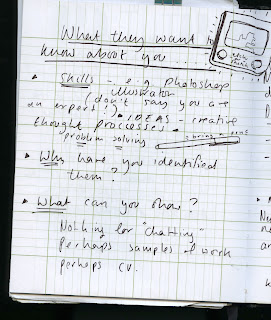 What they want to
know about you
• Skills - e.g photoshop
illustrator
(don't say you are
an expert) • IDEAS - creative
thought processes.
problem solving
• Why have you identified
them?
• What can you show?
Nothing for "chatting"
Perhaps samples of work
perhaps CV.